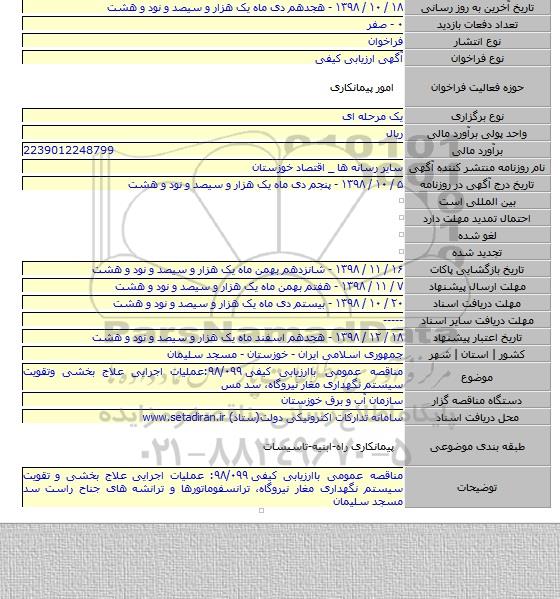 تاریخ آخرین به روز رسانی ۱۸ / ۱۰ / ۱۳۹۸ - هجدهم دی ماه یک هزار و سیصد و نود و هشت
تعداد دفعات بازدید ۰ - صفر
نوع انتشار فراخوان
نوع فراخوان آگهی ارزیابی کیفی
حوزه فعالیت فراخوان امور پیمانکاری
نوع برگزاری یک مرحله ای
واحد پولی برآورد مالی ریال
برآورد مالی 2239012248799
نام روزنامه منتشر کننده آگهی سایر رسانه ها _ اقتصاد خوزستان
تاریخ درج آگهی در روزنامه ۵ / ۱۰ / ۱۳۹۸ - پنجم دی ماه یک هزار و سیصد و نود و هشت
بین المللی است
احتمال تمدید مهلت دارد
لغو شده
تجدید شده
تاریخ بازگشایی پاکات ۱۶ / ۱۱ / ۱۳۹۸ - شانزدهم بهمن ماه یک هزار و سیصد و نود و هشت
مهلت ارسال پیشنهاد ۷ / ۱۱ / ۱۳۹۸ - هفتم بهمن ماه یک هزار و سیصد و نود و هشت
مهلت دریافت اسناد ۲۰ / ۱۰ / ۱۳۹۸ - بیستم دی ماه یک هزار و سیصد و نود و هشت
مهلت دریافت سایر اسناد -----
تاریخ اعتبار پیشنهاد ۱۸ / ۱۲ / ۱۳۹۸ - هجدهم اسفند ماه یک هزار و سیصد و نود و هشت
کشور | استان | شهر جمهوری اسلامی ایران - خوزستان - مسجد سلیمان
موضوع مناقصه عمومی باارزیابی کیفی ۹۸/۰۹۹:عملیات اجرایی علاج بخشی وتقویت
سیستم نگهداری مغار نیروگاه، سد مس
دستگاه مناقصه گزار سازمان آب و برق خوزستان
محل دریافت اسناد سامانه تدارکات الکترونیکی دولت(ستاد) www.setadiran.ir
طبقه بندی موضوعی پیمانکاری راه-ابنیه-تاسیسات
توضیحات مناقصه عمومی باارزیابی کیفی ۹۸/۰۹۹: عملیات اجرایی علاج بخشی و تقویت
سیستم نگهداری مغار نیروگاه، ترانسفوماتورها و ترانشه های جناح راست سد
مسجد سلیمان
ParsNamadData
۰۲۱-۸۸۳۴۹۶۷۰-۵